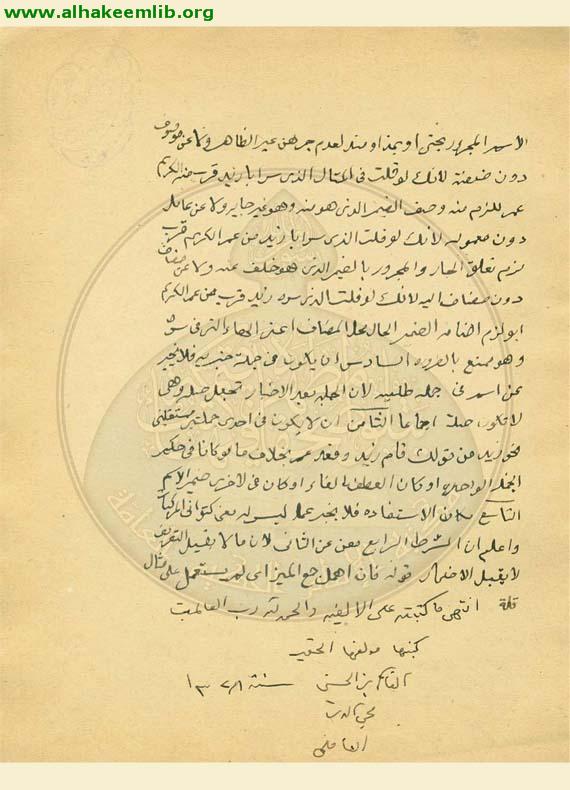 www.alhakeemlib.org
الاسم المجرور بحتى او بمذ او منذ لعدم جرهن غير الظاهر ولا عن موصوف
دون صفته لانك لو قلت في المثال الذي سر ابا زيد قرب منه الكريم
عمر للزم منه وصف الضمير الذي هو منه وهو غير جايز ولا عن عامل
دون معموله لانك لو قلت الذي سر ابا زيد من عمر الكريم قرب
لزم تعلق الجار والمجرور بالضمير الذي هو خلف عنه ولا عن مضاف
دون مضاف اليه لانك لو قلت الذي سره زيد قرب من عمر الكريم
ابو لزم اضافة الضمير الحال محل المضاف اعني الهاء التي في سره
وهو ممتنع بالضرورة السادس ان يكون في جملة خبريه فلا يخبر
عن اسم في جملة طلبيه لان الجملة بعد الاخبار تجعل صلة وهي
لا تكون صلة اجماعا الثامن ان لا يكون في احدى جملتين مستقلتين
نحو زيد من قولك قام زيد وقعد عمر بخلاف ما لو كانا في حكم
الجملة الواحدة او كان العطف بالفاء او كان في الاخرى ضمير الاسم
التاسع امكان الاستفاده فلا يخبر عما ليس له معنى كثواني الاعلام
واعلم ان الشرط الرابع مغن عن الثاني لان ما لا يقبل التعريف
لا يقبل الاضمار قوله فان اهمل جمع المميز اي لم يستعمل على مثال
قلة انتهى ما كتبته على الالفيه والحمد لله رب العالمين
كتبها مولفها الحقير
القاسم بن الحسن سنة
محي الدين
العاملي